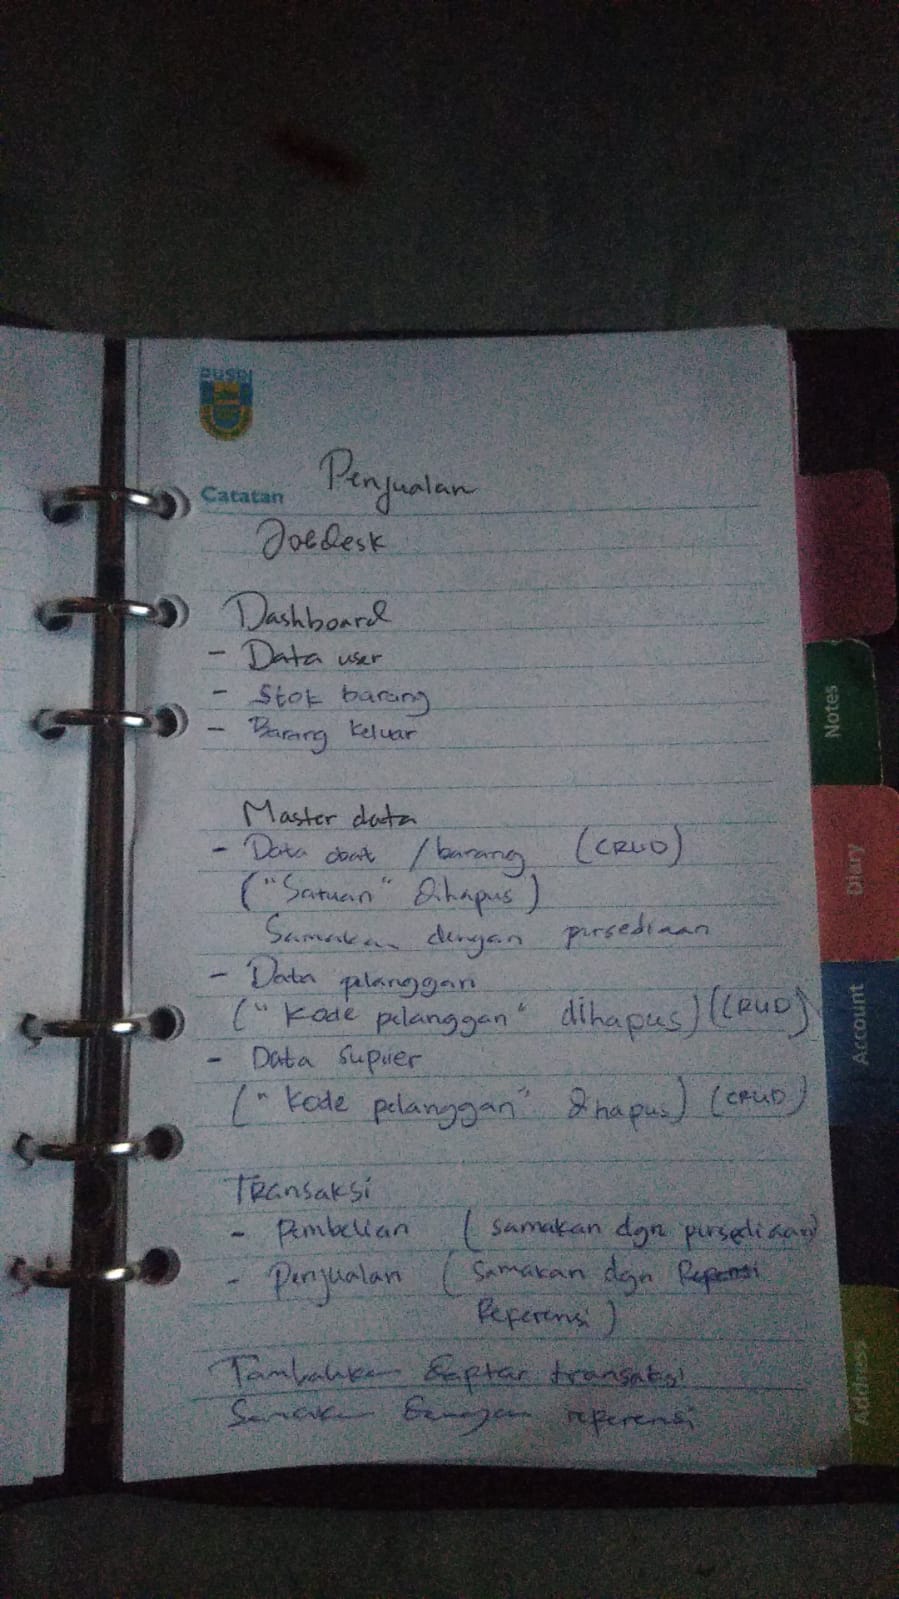 Catatan Penjualan
Jobdesk
Dashboard
- Data user
- Stok barang
- Barang keluar
Master data
- Data obat / barang (CRUD)
("Satuan" dihapus)
Samakan dengan persediaan
- Data pelanggan
("Kode pelanggan" dihapus) (CRUD)
- Data Suplier
("Kode pelanggan" dihapus) (CRUD)
Transaksi
- Pembelian (samakan dgn persediaan)
- Penjualan (samakan dgn
Referensi)
Tambahkan daftar transaksi
Samakan dengan referensi
Notes
Diary
Account
Address